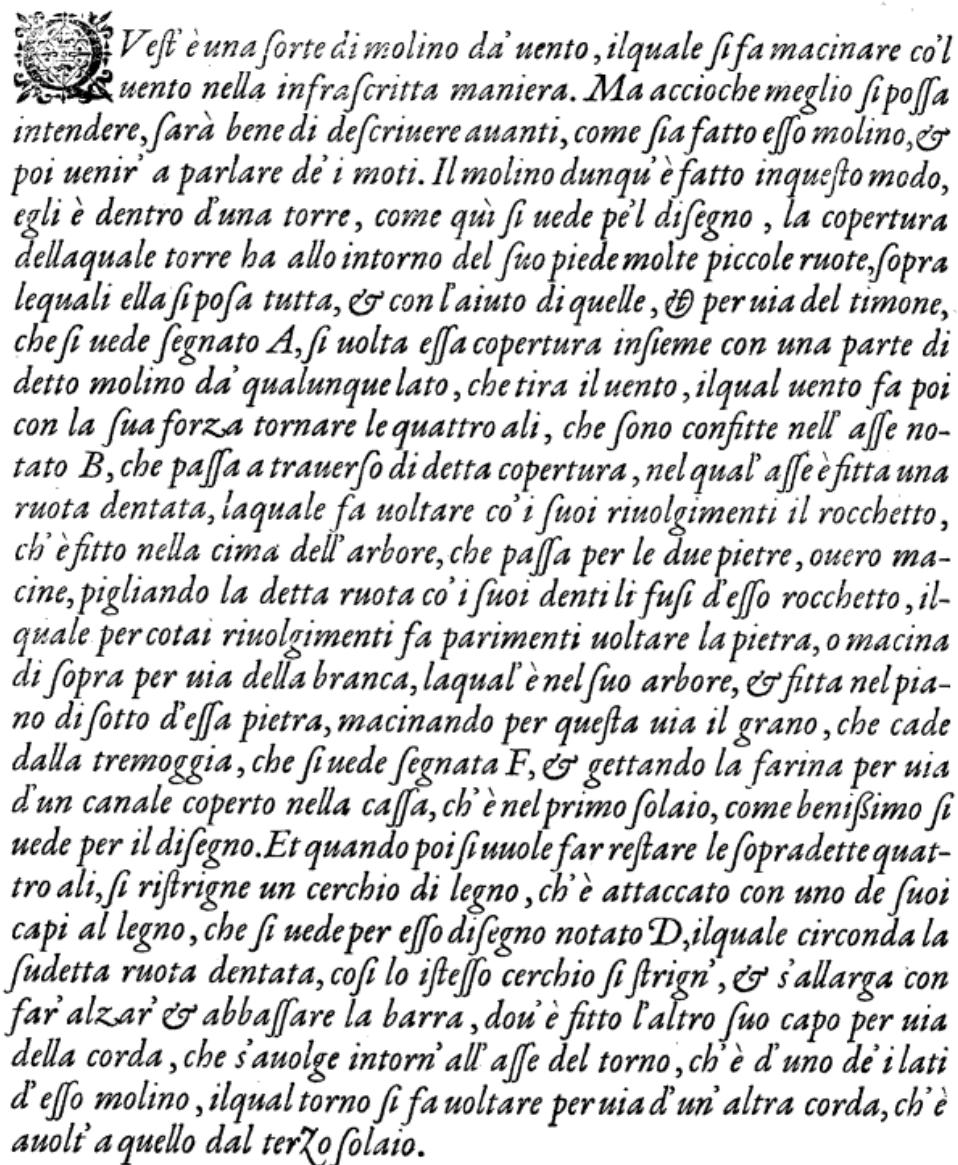 QVest' è una sorte di molino da' uento, ilquale si fa macinare co'l
uento nella infrascritta maniera. Ma accioche meglio si possa
intendere, sarà bene di descriuere auanti, come sia fatto esso molino, &
poi uenir' a parlare de' i moti. Il molino dunqu' è fatto in questo modo,
egli è dentro d'una torre, come quì si uede pe'l disegno, la copertura
dellaquale torre ha allo intorno del suo piede molte piccole ruote, sopra
lequali ella si posa tutta, & con l'aiuto di quelle, & per uia del timone,
che si uede segnato A, si uolta essa copertura insieme con una parte di
detto molino da' qualunque lato, che tira il uento, ilqual uento fa poi
con la sua forza tornare le quattro ali, che sono confitte nell' asse no-
tato B, che passa a trauerso di detta copertura, nel qual' asse è fitta una
ruota dentata, laquale fa uoltare co' i suoi riuolgimenti il rocchetto,
ch' è fitto nella cima dell' arbore, che passa per le due pietre, ouero ma-
cine, pigliando la detta ruota co' i suoi denti li fusi d'esso rocchetto, il-
quale per cotai riuolgimenti fa parimenti uoltare la pietra, o macina
di sopra per uia della branca, laqual' è nel suo arbore, & fitta nel pia-
no di sotto d'essa pietra, macinando per questa uia il grano, che cade
dalla tremoggia, che si uede segnata F, & gettando la farina per uia
d'un canale coperto nella cassa, ch' è nel primo solaio, come benißimo si
uede per il disegno. Et quando poi si uuole far restare le sopradette quat-
tro ali, si ristrigne un cerchio di legno, ch' è attaccato con uno de suoi
capi al legno, che si uede per esso disegno notato D, ilquale circonda la
sudetta ruota dentata, cosi lo istesso cerchio si strign', & s'allarga con
far' alzar' & abbassare la barra, dou' è fitto l'altro suo capo per uia
della corda, che s'auolge intorn' all' asse del torno, ch' è d'uno de' i lati
d'esso molino, ilqual torno si fa uoltare per uia d'un' altra corda, ch' è
auolt' a quello dal terzo solaio.